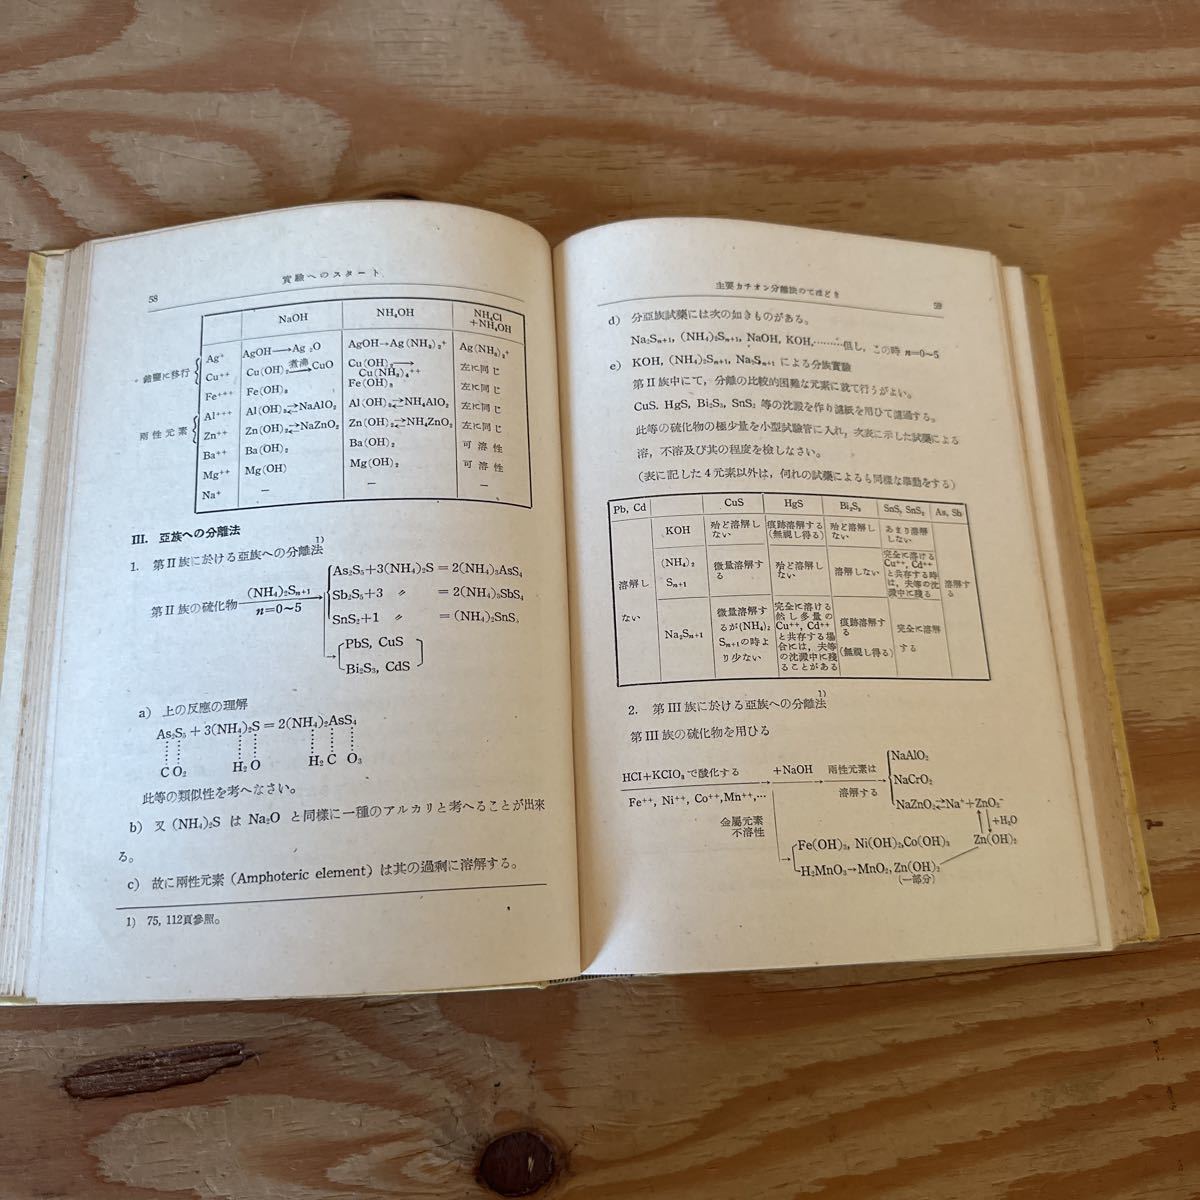 58
實驗へのスタート
NaOH NH₄OH NH₄Cl +NH₄OH
Ag⁺ AgOH→Ag₂O AgOH→Ag(NH₃)₂⁺ Ag(NH₃)₂⁺
Cu⁺⁺ Cu(OH)₂ 煮沸→ CuO Cu(OH)₂→Cu(NH₃)₄⁺⁺ 左に同じ
Fe⁺⁺⁺ Fe(OH)₃ Fe(OH)₃ 左に同じ
Al⁺⁺⁺ Al(OH)₃⇄NaAlO₂ Al(OH)₃⇄NH₄AlO₂ 左に同じ
Zn⁺⁺ Zn(OH)₂⇄NaZnO₂ Zn(OH)₂⇄NH₄ZnO₂ 左に同じ
Ba⁺⁺ Ba(OH)₂ Ba(OH)₂ 可溶性
Mg⁺⁺ Mg(OH) Mg(OH)₂ 可溶性
Na⁺ — — —
錯鹽に移行
兩性元素
III. 亞族への分離法
1. 第II族に於ける亞族への分離法¹⁾
第II族の硫化物 (NH₄)₂Sₙ₊₁ n=0~5
As₂S₅+3(NH₄)₂S=2(NH₄)₃AsS₄
Sb₂S₅+3 〃 =2(NH₄)₃SbS₄
SnS₂+1 〃 =(NH₄)₂SnS₃
PbS, CuS
Bi₂S₃, CdS
a) 上の反應の理解
As₂S₅+3(NH₄)₂S=2(NH₄)₃AsS₄
C O₂ H₂ O H₂ C O₃
此等の類似性を考へなさい。
b) 又 (NH₄)₂S は Na₂O と同樣に一種のアルカリと考へることが出來
る。
c) 故に兩性元素 (Amphoteric element) は其の過剩に溶解する。
1) 75, 112頁參照。
主要カチオン分離法のてほどき
59
d) 分亞族試藥には次の如きものがある。
Na₂Sₙ₊₁, (NH₄)₂Sₙ₊₁, NaOH, KOH,………但し, この時 n=0~5
e) KOH, (NH₄)₂Sₙ₊₁, Na₂Sₙ₊₁ による分族實驗
第II族中にて, 分離の比較的困難な元素に就て行うがよい。
CuS. HgS, Bi₂S₃, SnS₂ 等の沈澱を作り濾紙を用ひて濾過する。
此等の硫化物の極少量を小型試驗管に入れ, 次表に示した試藥による
溶, 不溶及び其の程度を檢しなさい。
(表に記した4元素以外は, 何れの試藥によるも同樣な擧動をする)
Pb, Cd CuS HgS Bi₂S₃ SnS, SnS₂ As, Sb
溶解しない
KOH 殆ど溶解しない 痕跡溶解する(無視し得る) 殆ど溶解しない あまり溶解しない
(NH₄)₂Sₙ₊₁ 微量溶解する 殆ど溶解しない 溶解しない 完全に溶けるCu⁺⁺, Cd⁺⁺と共存する時は, 夫等の沈澱中に殘る
Na₂Sₙ₊₁ 微量溶解するが(NH₄)₂Sₙ₊₁の時より少ない 完全に溶ける然し多量のCu⁺⁺, Cd⁺⁺と共存する場合には, 夫等の沈澱中に殘ることがある 痕跡溶解する(無視し得る) 完全に溶解する
溶解する
2. 第III族に於ける亞族への分離法¹⁾
第III族の硫化物を用ひる
HCl+KClO₃で酸化する
Fe⁺⁺, Ni⁺⁺, Co⁺⁺, Mn⁺⁺,…
+NaOH
兩性元素は溶解する
NaAlO₂
NaCrO₂
NaZnO₂⇄Na⁺+ZnO₂⁻
+H₂O
Zn(OH)₂
金屬元素
不溶性
Fe(OH)₃, Ni(OH)₂, Co(OH)₃
H₂MnO₃→MnO₂, Zn(OH)₂
(一部分)